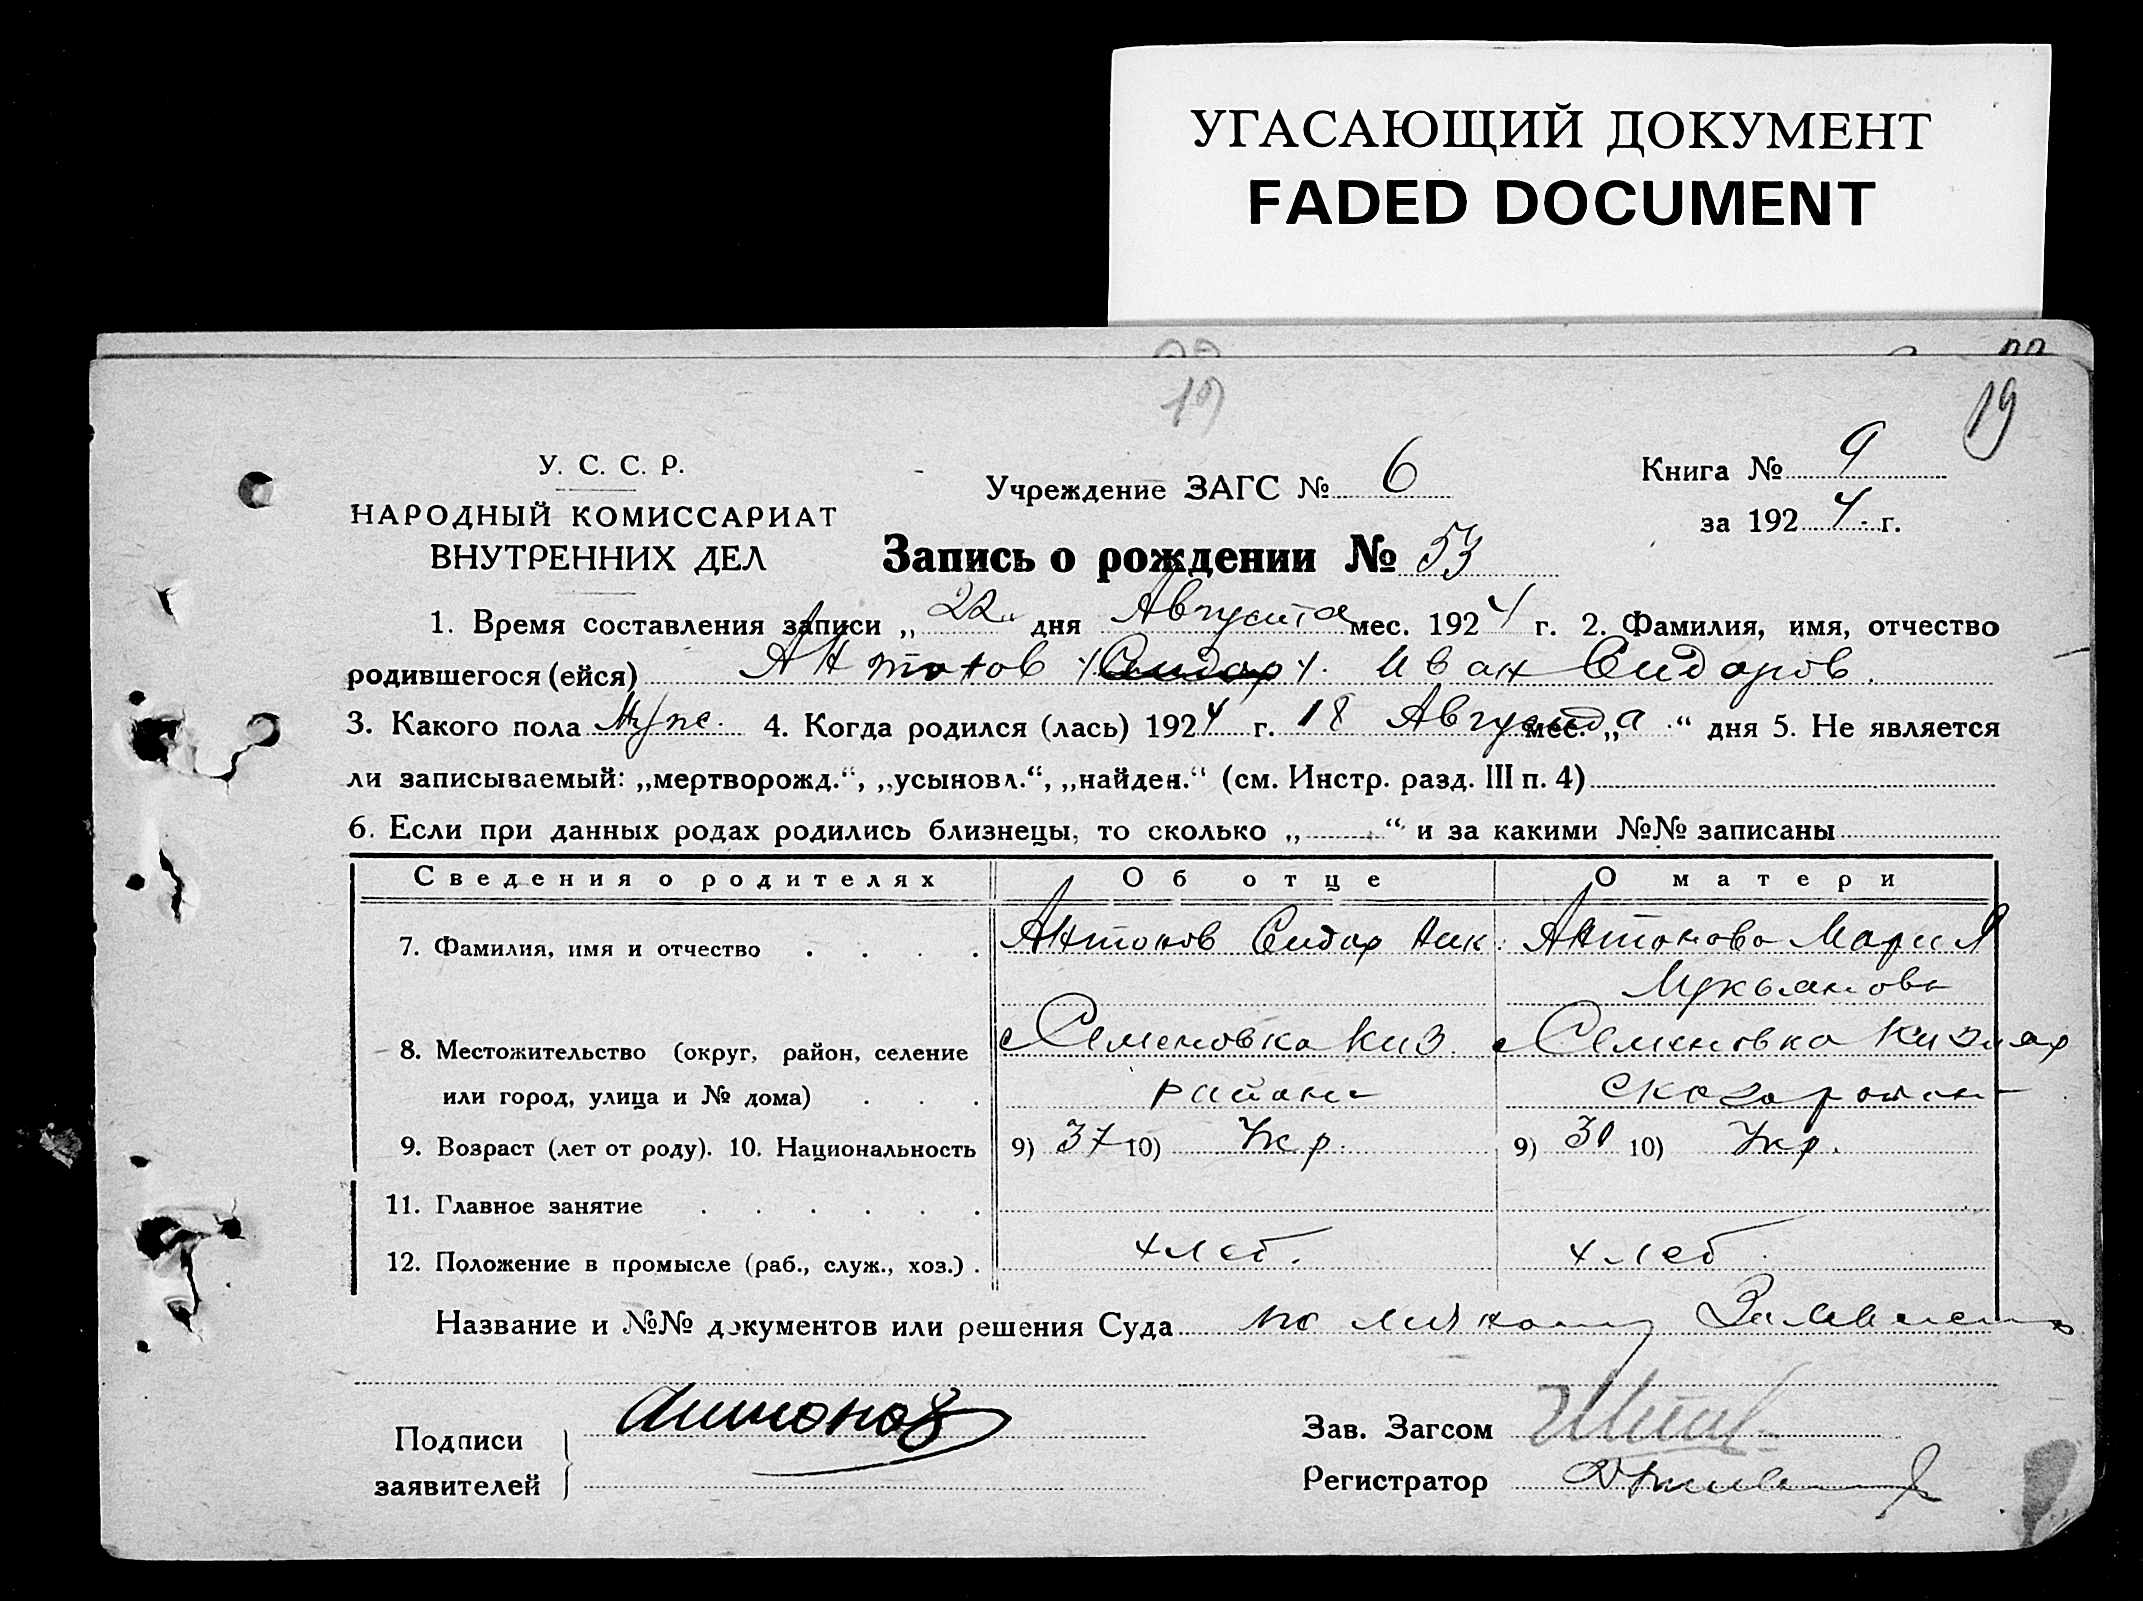 УГАСАЮЩИЙ ДОКУМЕНТ
FADED DOCUMENT
19
19
У. С. С. Р.
НАРОДНЫЙ КОМИССАРИАТ
ВНУТРЕННИХ ДЕЛ
Учреждение ЗАГС № 6
Книга № 9
за 1924 г.
Запись о рождении № 53
1. Время составления записи „22" дня Августа мес. 1924 г. 2. Фамилия, имя, отчество
родившегося (ейся) Антонов Иван Сидоров.
3. Какого пола Муж. 4. Когда родился (лась) 1924 г. 18 Августа мес. „ “ дня 5. Не является
ли записываемый: „мертворожд.“, „усыновл.“, „найден.“ (см. Инстр. разд. III п. 4)
6. Если при данных родах родились близнецы, то сколько „ “ и за какими №№ записаны
Сведения о родителях Об отце О матери
7. Фамилия, имя и отчество Антонов Сидор Ник. Антонова Мария
8. Местожительство (округ, район, селение Семеновка Киз. Семеновка Кизияр
или город, улица и № дома) района ского района
9. Возраст (лет от роду). 10. Национальность 9) 37 10) Укр. 9) 30 10) Укр.
11. Главное занятие
12. Положение в промысле (раб., служ., хоз.) хлеб. хлеб.
Название и №№ документов или решения Суда по личному Заявлению
Подписи
заявителей
Антонов
Зав. Загсом
Регистратор